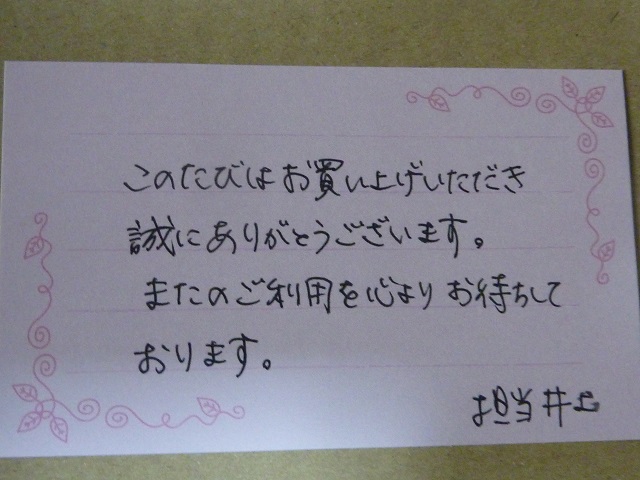 このたびはお買い上げいただき
誠にありがとうございます。
またのご利用を心よりお待ちして
おります。
担当井上